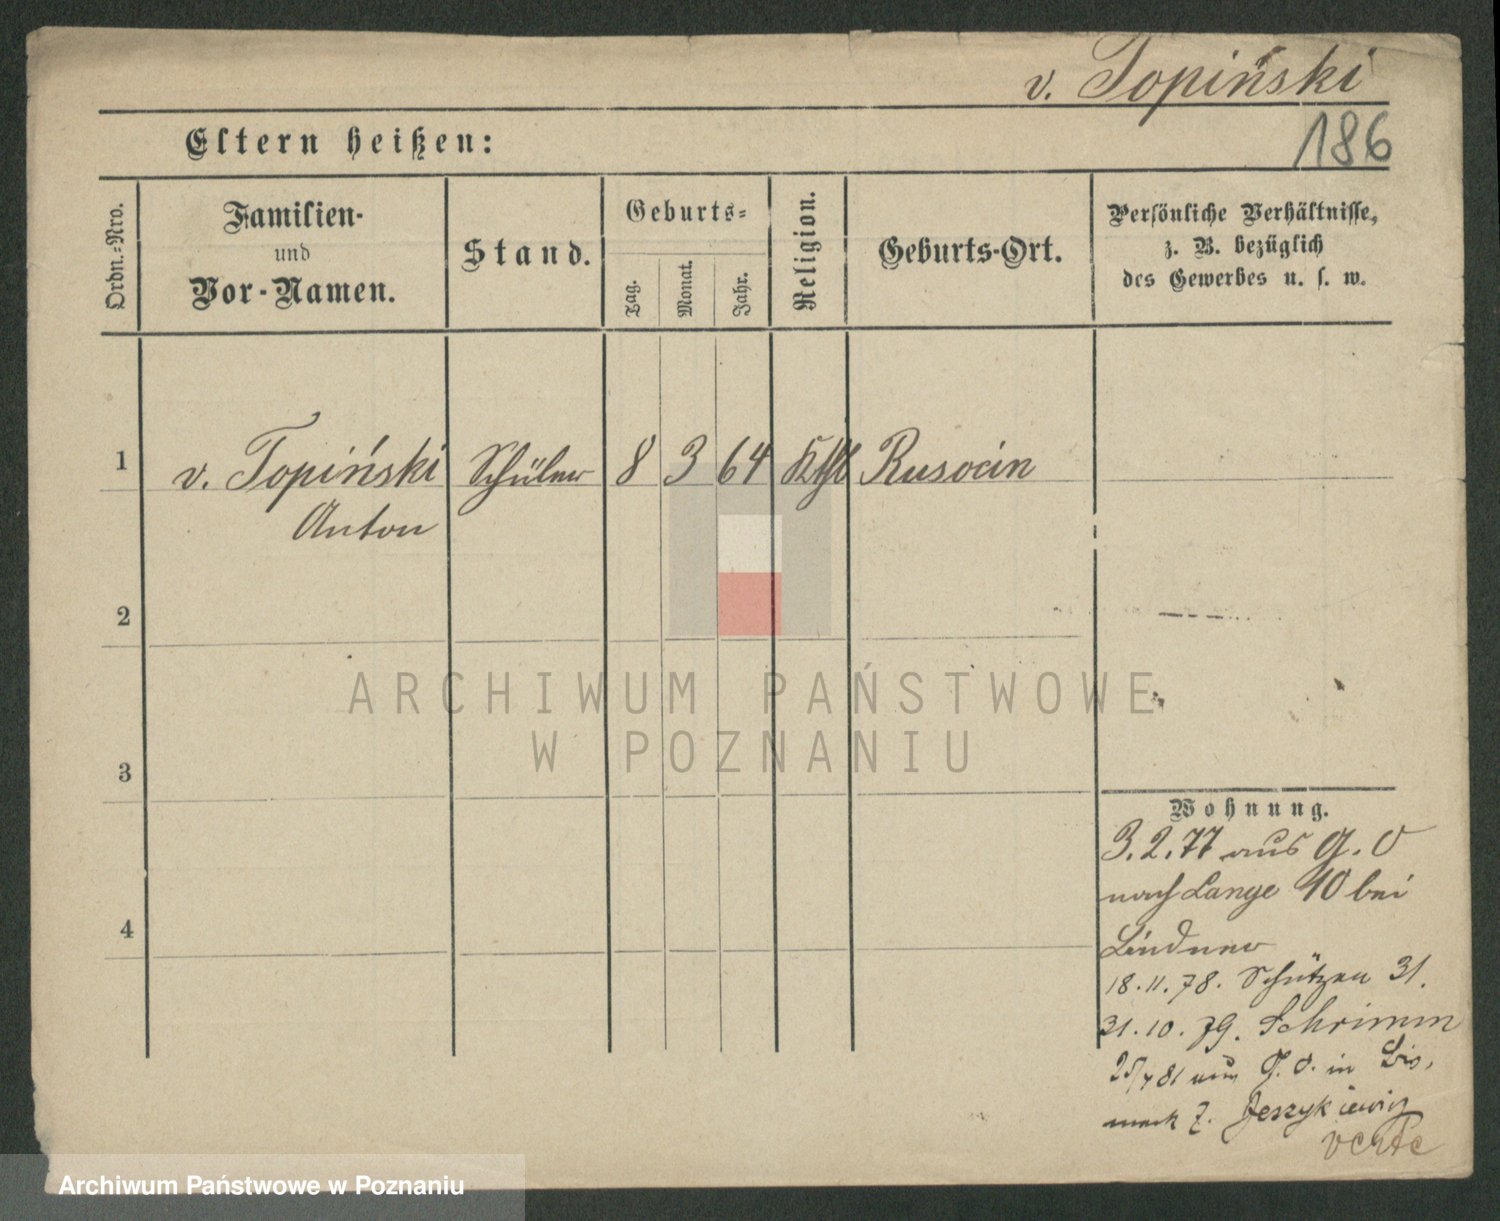 v. Topiński
Eltern heißen:
186
Ordn.-Nro.
Familien-
und
Vor-Namen.
Stand.
Geburts-
Tag.
Monat.
Jahr.
Religion.
Geburts-Ort.
Persönliche Verhältnisse,
z. B. bezüglich
des Gewerbes u. s. w.
1 v. Topiński Schüler 8 3 64 Kthl Rusocin
Anton
2
3
4
Wohnung.
3.2.77 aus G. O
nach Lange 10 bei
Lindner
18.11.78. Schützen 31.
31.10.79. Schrimm
25/4 81 aus G. O. in Bis,
mark 7. Jeszykiewicz
verte
ARCHIWUM PAŃSTWOWE
W POZNANIU
Archiwum Państwowe w Poznaniu